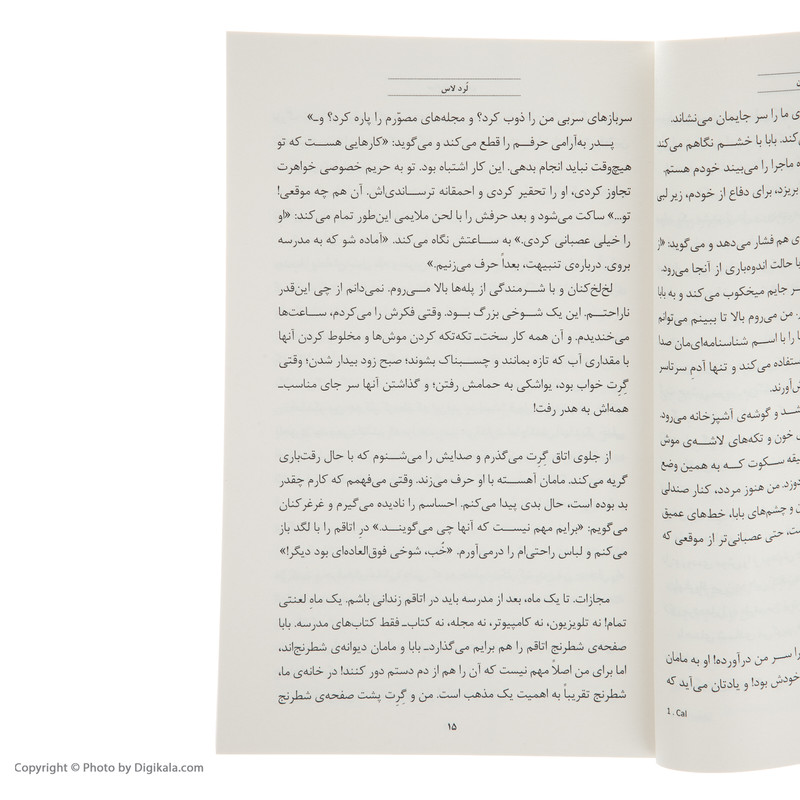 لُرد لاس
سربازهای سربی من را ذوب کرد؟ و مجله‌های مصوّرم را پاره کرد؟ وـ»
پـدر به‌آرامی حرفـم را قطع می‌کند و می‌گوید: «کارهایی هست که تو
هیچ‌وقت نباید انجام بدهی. این کار اشتباه بود. تو به حریم خصوصی خواهرت
تجاوز کردی، او را تحقیر کردی و احمقانه ترساندی‌اش. آن هم چه موقعی!
تو...» ساکت می‌شود و بعد حرفش را با لحن ملایمی این‌طور تمام می‌کند: «او
را خیلی عصبانی کردی.» به ساعتش نگاه می‌کند. «آماده شو که به مدرسه
بروی. درباره‌ی تنبیهت، بعداً حرف می‌زنیم.»
لخ‌لخ‌کنان و با شرمندگی از پله‌ها بالا می‌روم. نمی‌دانم از چی این‌قدر
ناراحتم. این یک شوخی بزرگ بود. وقتی فکرش را می‌کردم، ساعت‌ها
می‌خندیدم. و آن همه کار سخت‌ـ تکه‌تکه کردن موش‌ها و مخلوط کردن آنها
با مقداری آب که تازه بمانند و چسبناک بشوند؛ صبح زود بیدار شدن؛ وقتی
گِرِت خواب بود، یواشکی به حمامش رفتن؛ و گذاشتن آنها سر جای مناسب‌ـ
همه‌اش به هدر رفت!
از جلوی اتاق گِرِت می‌گذرم و صدایش را می‌شنوم که با حال رقت‌باری
گریه می‌کند. مامان آهسته با او حرف می‌زند. وقتی می‌فهمم که کارم چقدر
بد بوده است، حال بدی پیدا می‌کنم. احساسم را نادیده می‌گیرم و غرغرکنان
می‌گویم: «برایم مهم نیست که آنها چی می‌گویند.» درِ اتاقم را با لگد باز
می‌کنم و لباس راحتی‌ام را درمی‌آورم. «خُب، شوخی فوق‌العاده‌ای بود دیگر!»
مجازات. تا یک ماه، بعد از مدرسه باید در اتاقم زندانی باشم. یک ماهِ لعنتی
تمام! نه تلویزیون، نه کامپیوتر، نه مجله، نه کتاب‌ـ فقط کتاب‌های مدرسه. بابا
صفحه‌ی شطرنج اتاقم را هم برایم می‌گذاردـ بابا و مامان دیوانه‌ی شطرنج‌اند،
اما برای من اصلاً مهم نیست که آن را هم از دم دستم دور کنند! در خانه‌ی ما،
شطرنج تقریباً به اهمیت یک مذهب است. من و گِرِت پشت صفحه‌ی شطرنج
۱۵
ی ما را سر جایمان می‌نشاند.
کند. بابا با خشم نگاهم می‌کند
ه ماجرا را می‌بیند خودم هستم.
بریزد، برای دفاع از خودم، زیر لبی
ی هم فشار می‌دهد و می‌گوید: «از
با حالت اندوه‌باری از آنجا می‌رود.
ر جایم میخکوب می‌کند و به بابا
من می‌روم بالا تا ببینم می‌توانم
ما را با اسم شناسنامه‌ای‌مان صدا
ستفاده می‌کند و تنها آدمِ سرتاسر
ش‌آورند.
شد و گوشه‌ی آشپزخانه می‌رود.
خون و تکه‌های لاشه‌ی موش
یقه سکوت که به همین وضع
دوزد. من هنوز مردد، کنار صندلی
ن و چشم‌های بابا، خط‌های عمیق
ست، حتی عصبانی‌تر از موقعی که
را سر من درآورده! او به مامان
خودش بود! و یادتان می‌آید که
1 . Cal
Copyright © Photo by Digikala.com